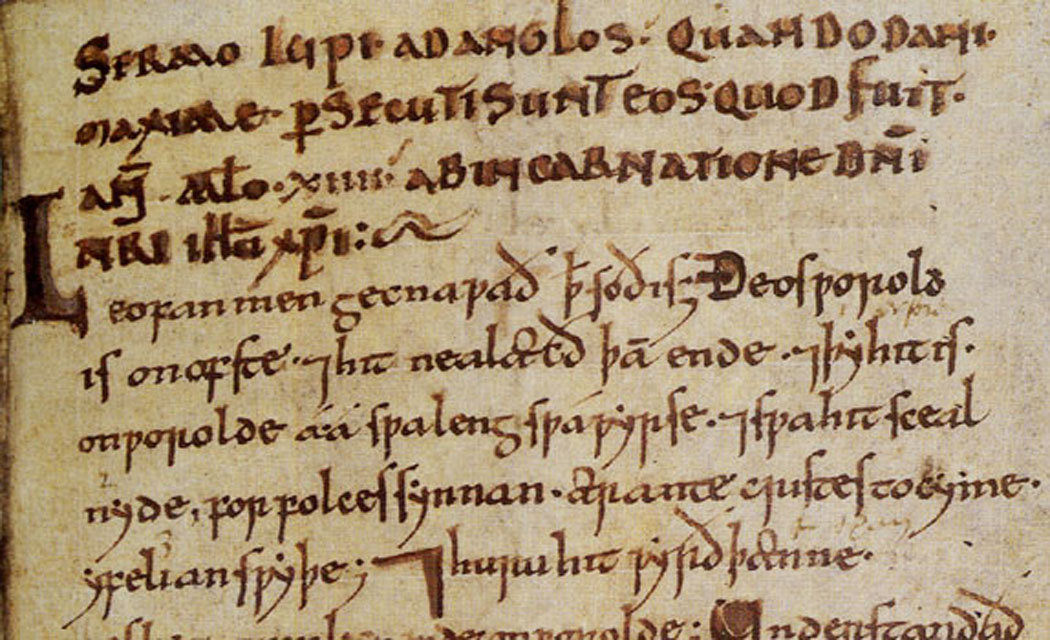 SERMO LUPI· AD ANGLOS· QUANDO DANI·
MAXIME· ꝑSECUTI SUNT EOS· QUOD FUIT·
AN̅· MĪLLO·XIIII· AB INCARNATIONE DN̅I
NR̅I IHU̅ XP̅I:
Leofan men gecnaƿað ꝥ soð is; Ðeos ƿorold
is on ofste·⁊ hit nealæcð þā ende·⁊ þy hit is·
on ƿorolde áá sƿa leng sƿa ƿyrse·⁊ sƿa hit sceal
nyde, for folces synnan· ær antecristes tocyme·
yfelian sƿyþe; ⁊ huru hit ƿyrð þænne·
on ƿorolde: Understandað